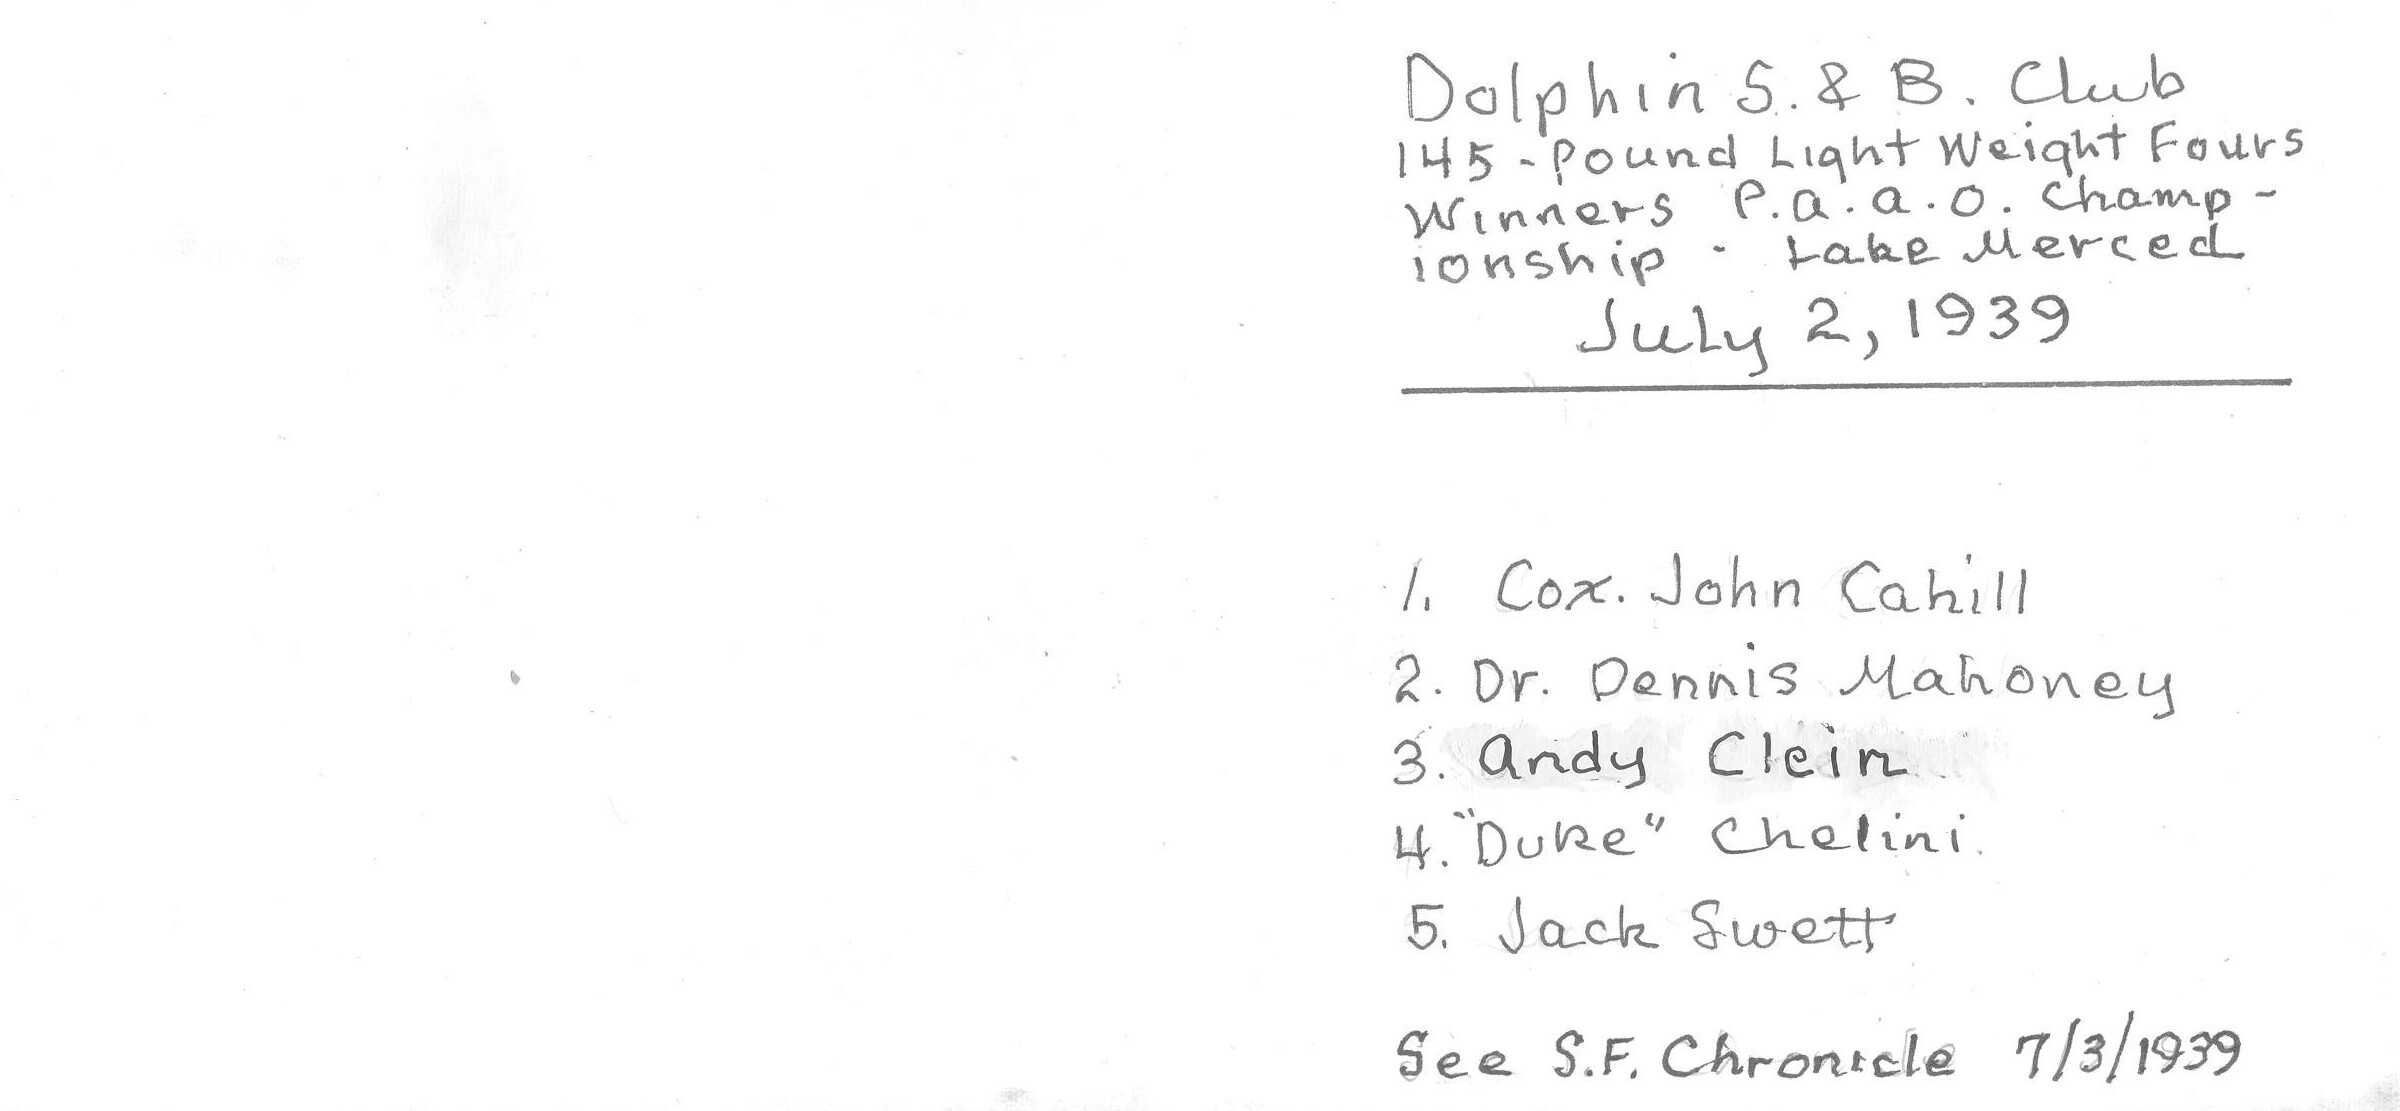 Dolphin S. & B. Club
145-Pound Light Weight Fours
Winners P.a.a.o. Champ-
ionship - Lake Merced
July 2, 1939
1. Cox. John Cahill
2. Dr. Dennis Mahoney
3. Andy Clein
4. "Duke" Chelini.
5. Jack Swett
See S.F. Chronicle 7/3/1939